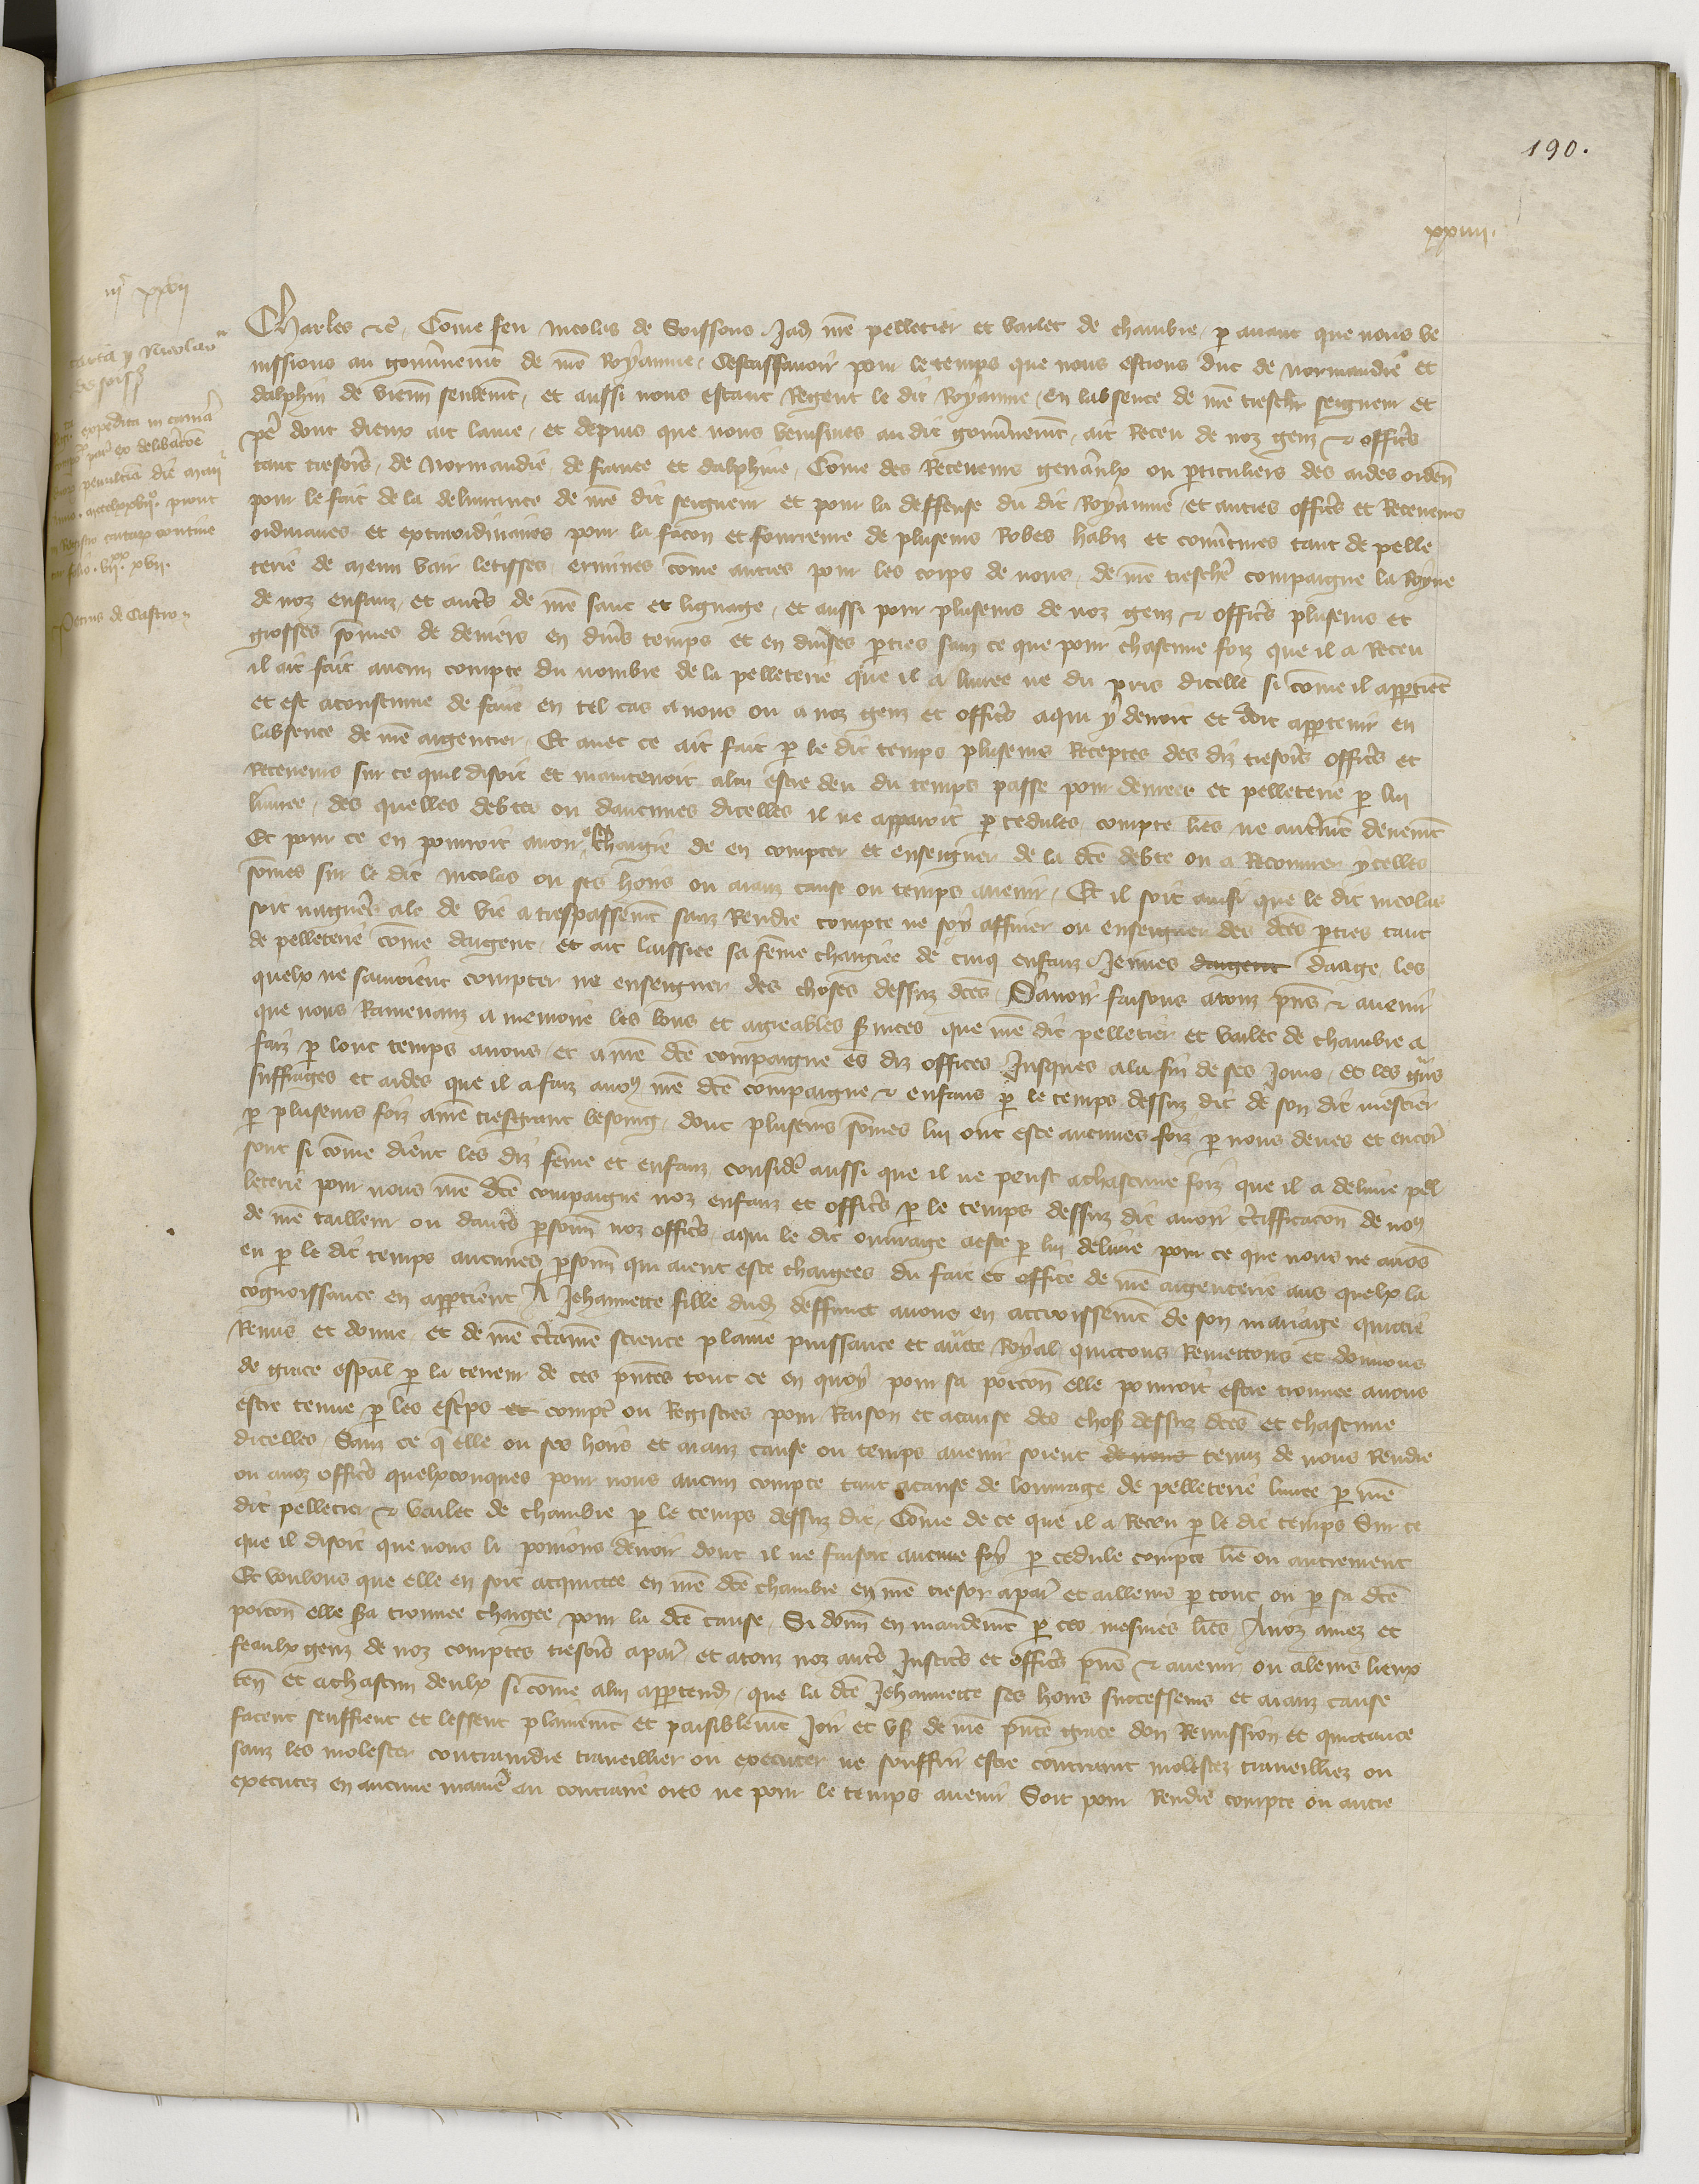 190.
xxiiii.
iiic xxvii
carta p Nicolao
de soiss
expedita in camera
penultia die maii
Petrus de Castro
Charles etc. Come feu nicolas de Soissons Jadis nre pelletier et varlet de chambre par avant que nous ve
nissions au gouvernement de nre Royaume Cestassavoir pour le temps que nous estions duc de normandie et
dalphin de viennois seulement, et aussi nous estant Regent le dit Royaume en labsence de nre treschier seigneur et
pere dont dieux ait lame, et depuis que nous venismes au dit gouvernement, ait Receu de noz genz et officiers
tant tresoriers de Normandie de france et dalphine, Come des Receveurs generaulx ou particuliers des aides ordenez
pour le fait de la delivrance de nre dit seigneur et pour la deffense du dit Royaume et autres officiers et Receveurs
ordinaires et extraordinaires pour la facon et fourreure de plusieurs Robes habiz et couvertures tant de pelle
terie de menu vair letisses, ermines come autres pour les corps de nous, de nre treschiere compaigne la Royne
de noz enfanz, et autres de nre sanc et lignage, et aussi pour plusieurs de noz genz et officiers plusieurs et
grosses somes de deniers en divers temps et en diverses parties sanz ce que pour chascune foiz que il a Receu
il ait fait aucun compte du nombre de la pelleterie que il a livree ne du pris dicelle si come il appartient
et est acoustume de faire en tel cas a nous ou a noz genz et officiers aqui y devoit et doit appartenir en
labsence de nre argentier. Et avec ce ait fait par le dit temps plusieurs Receptes des diz tresoriers officiers et
Receveurs sur ce quil disoit et maintenoit alui estre deu du temps passe pour denree et pelleterie par lui
livree, des quelles debtes ou daucunes dicelles il ne apparoit par cedules compte lres ne autrement deuement
Et pour ce en pourroit avoir este chargie de en compter et enseigner de la dce debte ou a Recouvrer ycelles
somes sur le dit nicolas ou ses hoirs ou aianz cause ou temps avenir, Et il soit ainsi que le dit nicolas
soit nagueres ale de vie a trespassement sanz Rendre compte ne soy affiner ou enseigner des dces parties tant
de pelleterie come dargent, et ait laissiee sa feme chargiee de cinq enfanz Jeunes dargent daage les
quelx ne sauroient compter ne enseigner des choses dessuz dces, Savoir faisons atouz pns et avenir
que nous Ramenanz a memoire les bons et agreables services que nre dit pelletier et varlet de chambre a
faiz par lonc temps anous et a nre dce compaigne es diz offices Jusques ala fin de ses Jours, et les grans
suffrages et aides que il a faiz anous nre dce compaigne et enfans par le temps dessuz dit de son dit mestier
par plusieurs foiz anre tresgrant besoing, dont plusieurs somes lui ont este aucunes foiz par nous deues et encore
sont si come dient les diz feme et enfanz, consideré aussi que il ne peust achascune foiz que il a delivré pel
leterie pour nous nre dce compaigne noz enfanz et officiers par le temps dessuz dit avoir certifficacion de nous
de nre tailleur ou dautres persones noz officiers aqui le dit ouvrage aeste par lui delivre pour ce que nous ne avons
eu par le dit temps aucunes persones qui aient este chargees du fait et office de nre argenterie aus quelx la
cognoissance en appartient A Jehannette fille dudit deffunct avons en accroissement de son mariage quittié
Remis et donne et de nre certaine science plaine puissance et auctorite Royal quittons Remettons et donnons
de grace especial par la teneur de ces pntes tout ce en quoy pour sa porcion elle pourroit estre trouvee anous
estre tenue par les escrips et comptes ou Registres pour Raison et acause des choses dessuz dces et chascune
dicelles, Sanz ce que elle ou ses hoirs et aianz cause ou temps avenir soient de nous tenuz de nous Rendre
ou anoz officiers quelxconques pour nous aucun compte tant acause de louvrage de pelleterie livree par nre
dit pelletier et varlet de chambre par le temps dessuz dit, Come de ce que il a Receu par le dit temps Sur ce
que il disoit que nous li povions devoir dont il ne faisoit aucune foy par cedule compte lre ou autrement
Et voulons que elle en soit acquittee en nre dce chambre en nre tresor aparis et ailleurs par tout ou par sa dce
porcion elle sera trouvee chargee pour la dce cause, Si donnons en mandement par ces mesmes lres Anoz amez et
feaulx genz de noz comptes tresoriers aparis et atouz noz autres Justiciers et officiers pns et avenir ou aleurs lieux
ten et achascun deulx si come alui appartendra, que la dce Jehannette ses hoirs successeurs et aianz cause
facent seuffrent et lessent plainement et paisiblement Joir et user de nre pnte grace don Remission et quittance
sanz les molester contraindre traveillier ou executer ne souffrir estre contrainz molestez traveilliez ou
executez en aucune maniere au contraire ores ne pour le temps avenir Soit pour Rendre compte ou autre